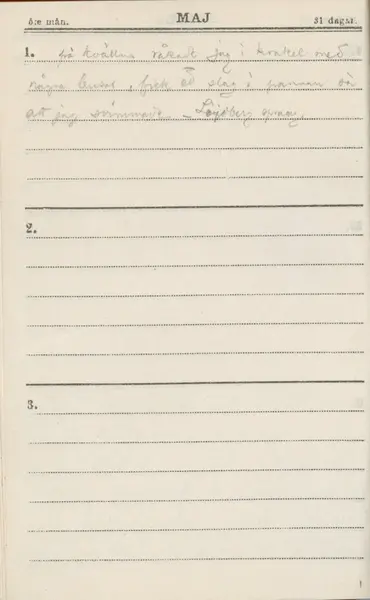 5:e mån. MAJ 31 dagar.
1. på kvällen råkade jag i krakel med
några busar, fick ett slag i pannan så
att jag svimmade. –
2.
3.